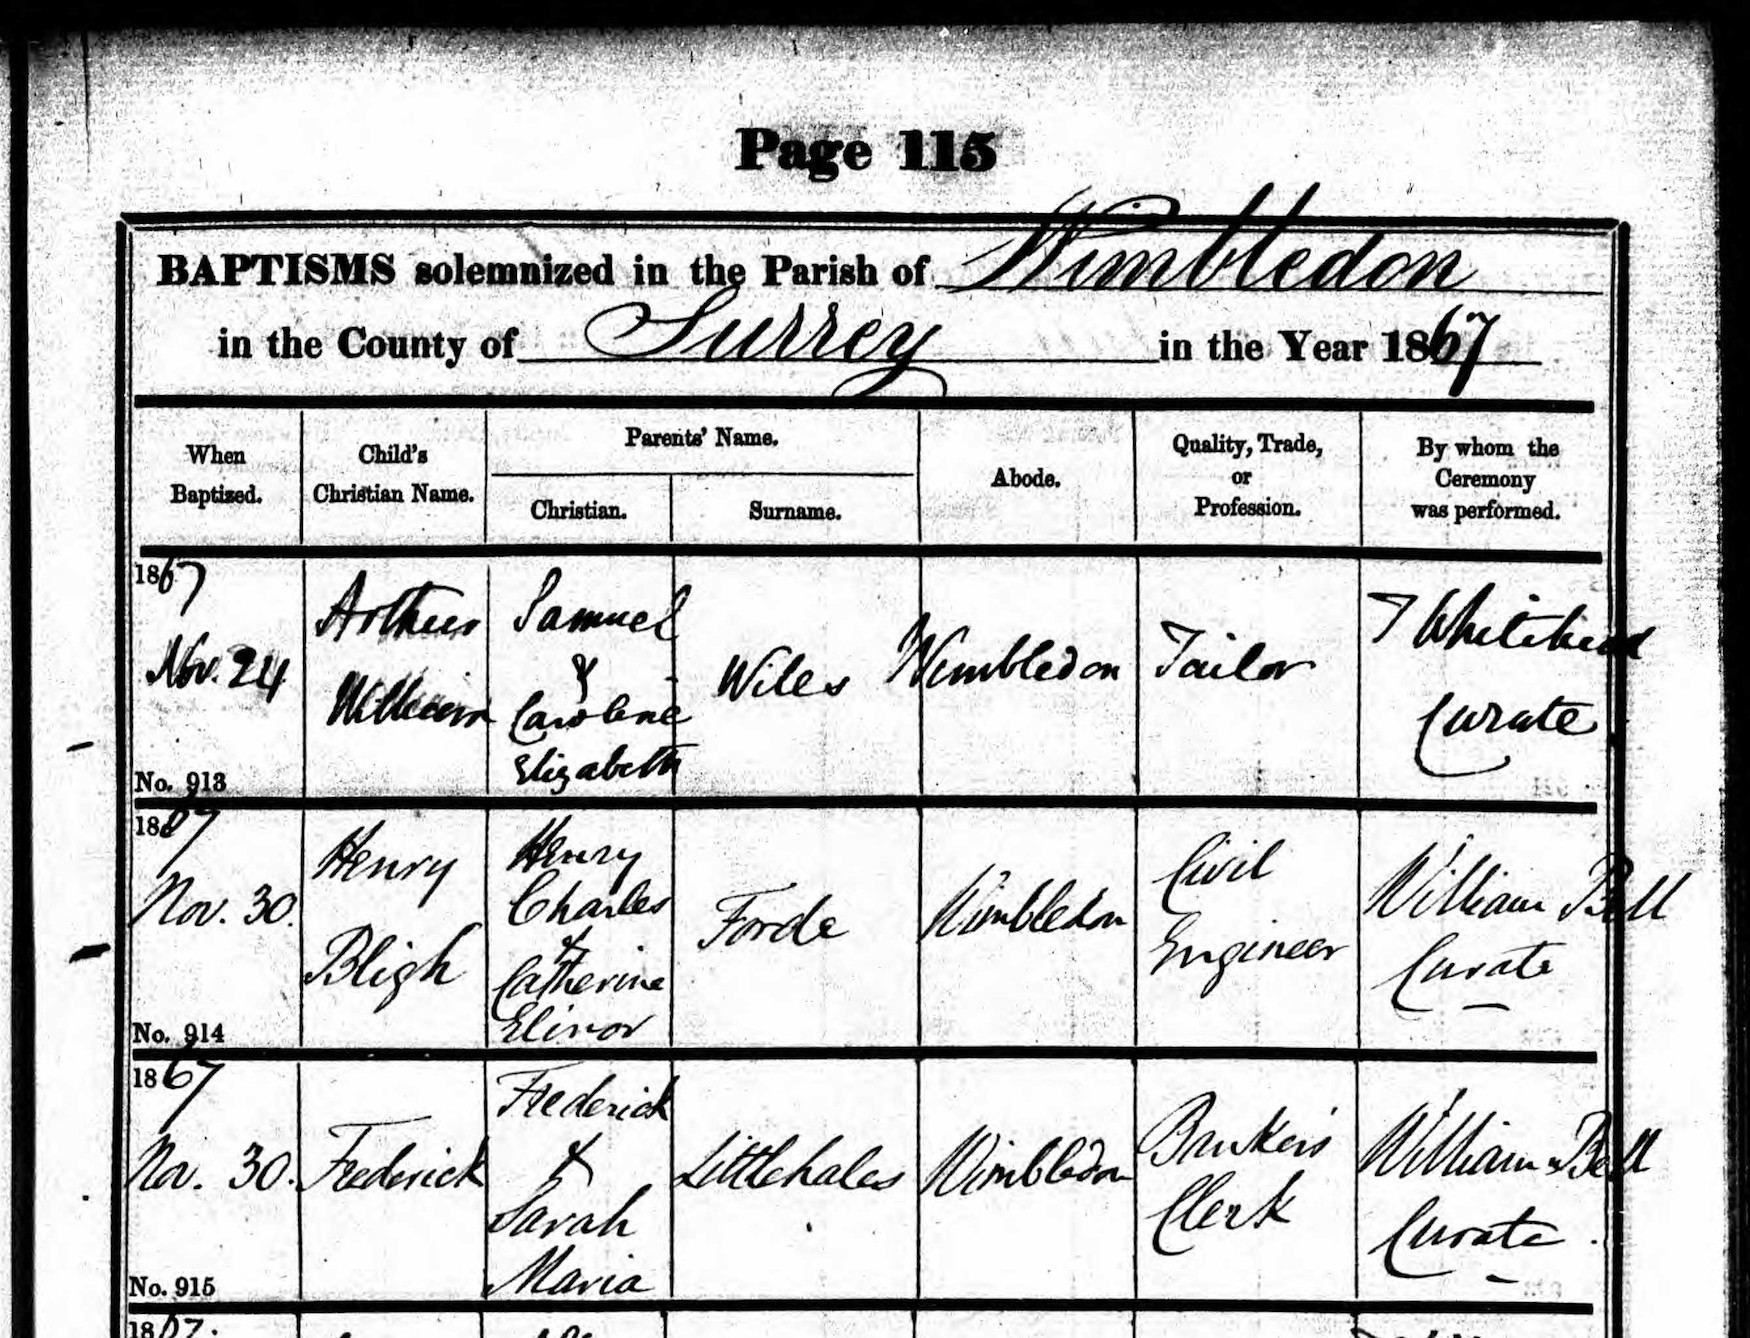 Page 115
BAPTISMS solemnized in the Parish of Wimbledon
in the County of Surrey in the Year 1867
When Baptized.
Child's Christian Name.
Parents' Name.
Christian.
Surname.
Abode.
Quality, Trade, or Profession.
By whom the Ceremony was performed.
1867
Nov. 24
No. 913
Arthur
William
Samuel
&
Caroline
Elizabeth
Wiles
Wimbledon
Tailor
T Whitehead
Curate
1867
Nov. 30.
No. 914
Henry
Bligh
Henry
Charles
&
Catherine
Elinor
Forde
Wimbledon
Civil
Engineer
William Bell
Curate
1867
Nov. 30.
No. 915
Frederick
Frederick
&
Sarah
Maria
Littlehales
Wimbledon
Banker's
Clerk
William Bell
Curate
1867.